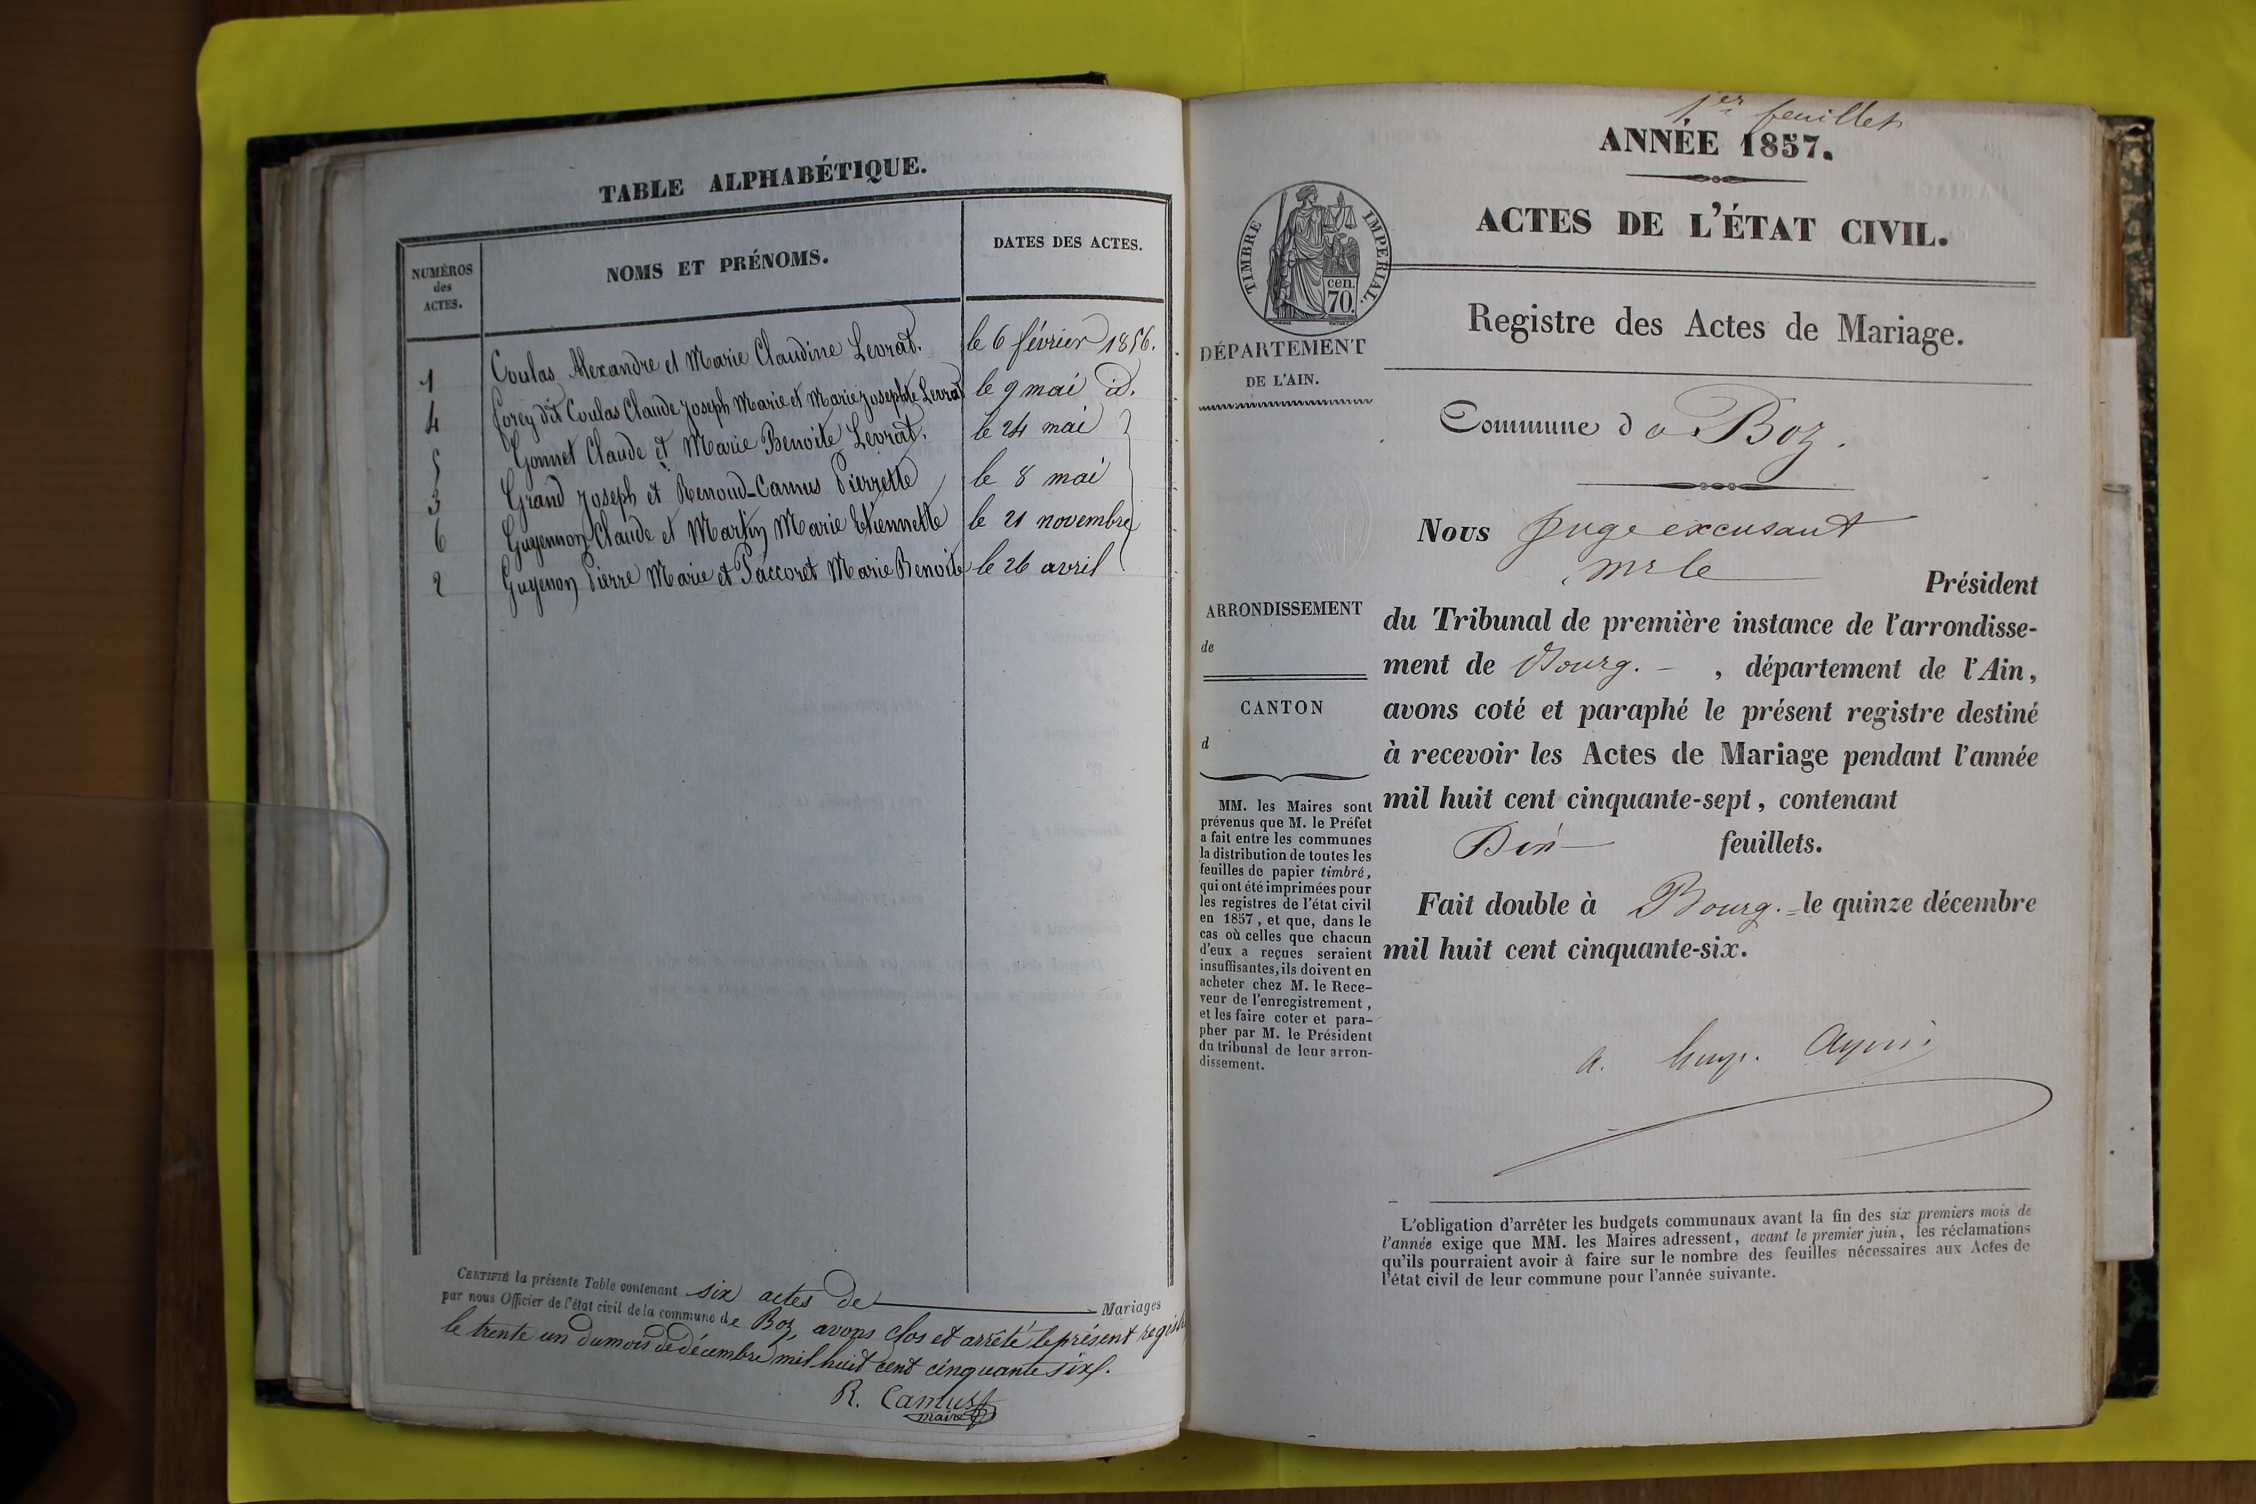 TABLE ALPHABÉTIQUE.
NUMÉROS
des
ACTES.
NOMS ET PRÉNOMS.
DATES DES ACTES.
1 Coulas Alexandre et Marie Claudine Levrat. le 6 février 1856.
4 Forey dit Coulas Claude Joseph Marie et Marie Josephte Levrat le 9 mai id.
5 Gonnet Claude et Marie Benoite Levrat. le 24 mai
3 Grand Joseph et Renoud-Camus Pierrette le 8 mai
6 Guyennon Claude et Martin Marie Etiennette le 21 novembre
2 Guyenon Pierre Marie et Paccoret Marie Benoite le 26 avril
CERTIFIÉ la présente Table contenant six actes de Mariages
par nous Officier de l'état civil de la commune de Boz, avons clos et arrêté le présent regist
le trente un du mois de décembre mil huit cent cinquante six.
R. Camus
maire
1er feuillet
ANNÉE 1857.
ACTES DE L'ÉTAT CIVIL.
TIMBRE IMPERIAL.
cen.
70.
Registre des Actes de Mariage.
DÉPARTEMENT
DE L'AIN.
Commune de Boz.
Nous Juge excusant
Mr le
Président
du Tribunal de première instance de l'arrondisse-
ment de Bourg. , département de l'Ain,
avons coté et paraphé le présent registre destiné
à recevoir les Actes de Mariage pendant l'année
mil huit cent cinquante-sept, contenant
Dix feuillets.
Fait double à Bourg. le quinze décembre
mil huit cent cinquante-six.
ARRONDISSEMENT
de
CANTON
d
MM. les Maires sont
prévenus que M. le Préfet
a fait entre les communes
la distribution de toutes les
feuilles de papier timbré,
qui ont été imprimées pour
les registres de l'état civil
en 1857, et que, dans le
cas où celles que chacun
d'eux a reçues seraient
insuffisantes, ils doivent en
acheter chez M. le Rece-
veur de l'enregistrement,
et les faire coter et para-
pher par M. le Président
du tribunal de leur arron-
dissement.
L'obligation d'arrêter les budgets communaux avant la fin des six premiers mois de
l'année exige que MM. les Maires adressent, avant le premier juin, les réclamations
qu'ils pourraient avoir à faire sur le nombre des feuilles nécessaires aux Actes de
l'état civil de leur commune pour l'année suivante.